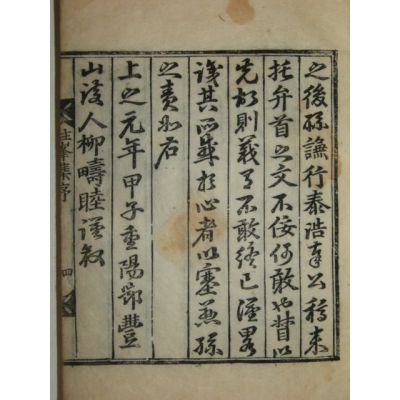 之後孫讌行泰浩奉公稿来
托弁首之文不佞何敢也以
先故則義有不敢終已謹畧
識其所感於心者以塞慈孫
之責如右
上之元年甲子重陽節豊
山後人柳疇睦謹叙
峯集序 四